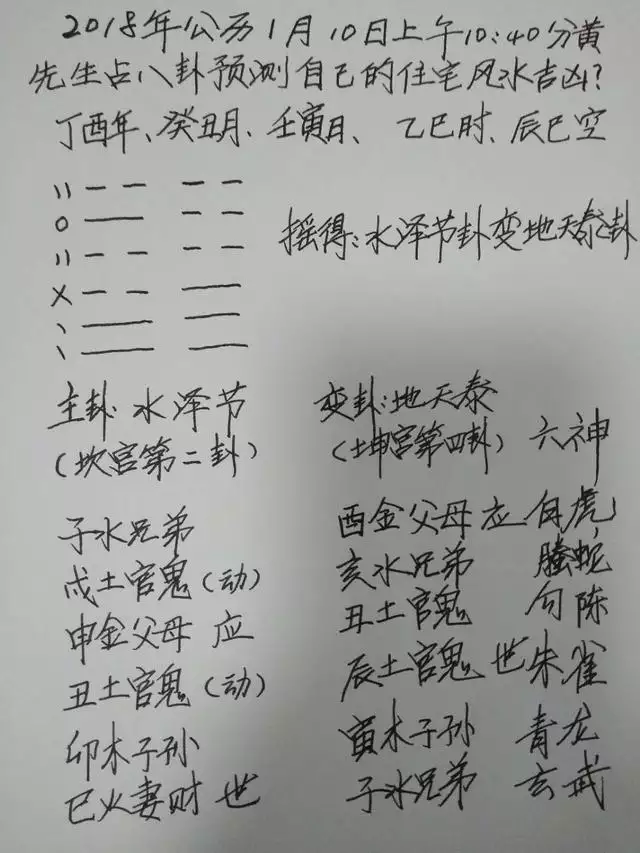 2018年公历1月10日上午10:40分黄
先生占八卦预测自己的住宅风水吉凶?
丁酉年、癸丑月、壬寅日、乙巳时、辰巳空
摇得:水泽节卦变地天泰卦
主卦:水泽节 变卦:地天泰
(坎宫第二卦) (坤宫第四卦) 六神
子水兄弟 酉金父母 应 白虎
戌土官鬼(动) 亥水兄弟 螣蛇
申金父母 应 丑土官鬼 勾陈
丑土官鬼(动) 辰土官鬼 世 朱雀
卯木子孙 寅木子孙 青龙
巳火妻财 世 子水兄弟 玄武